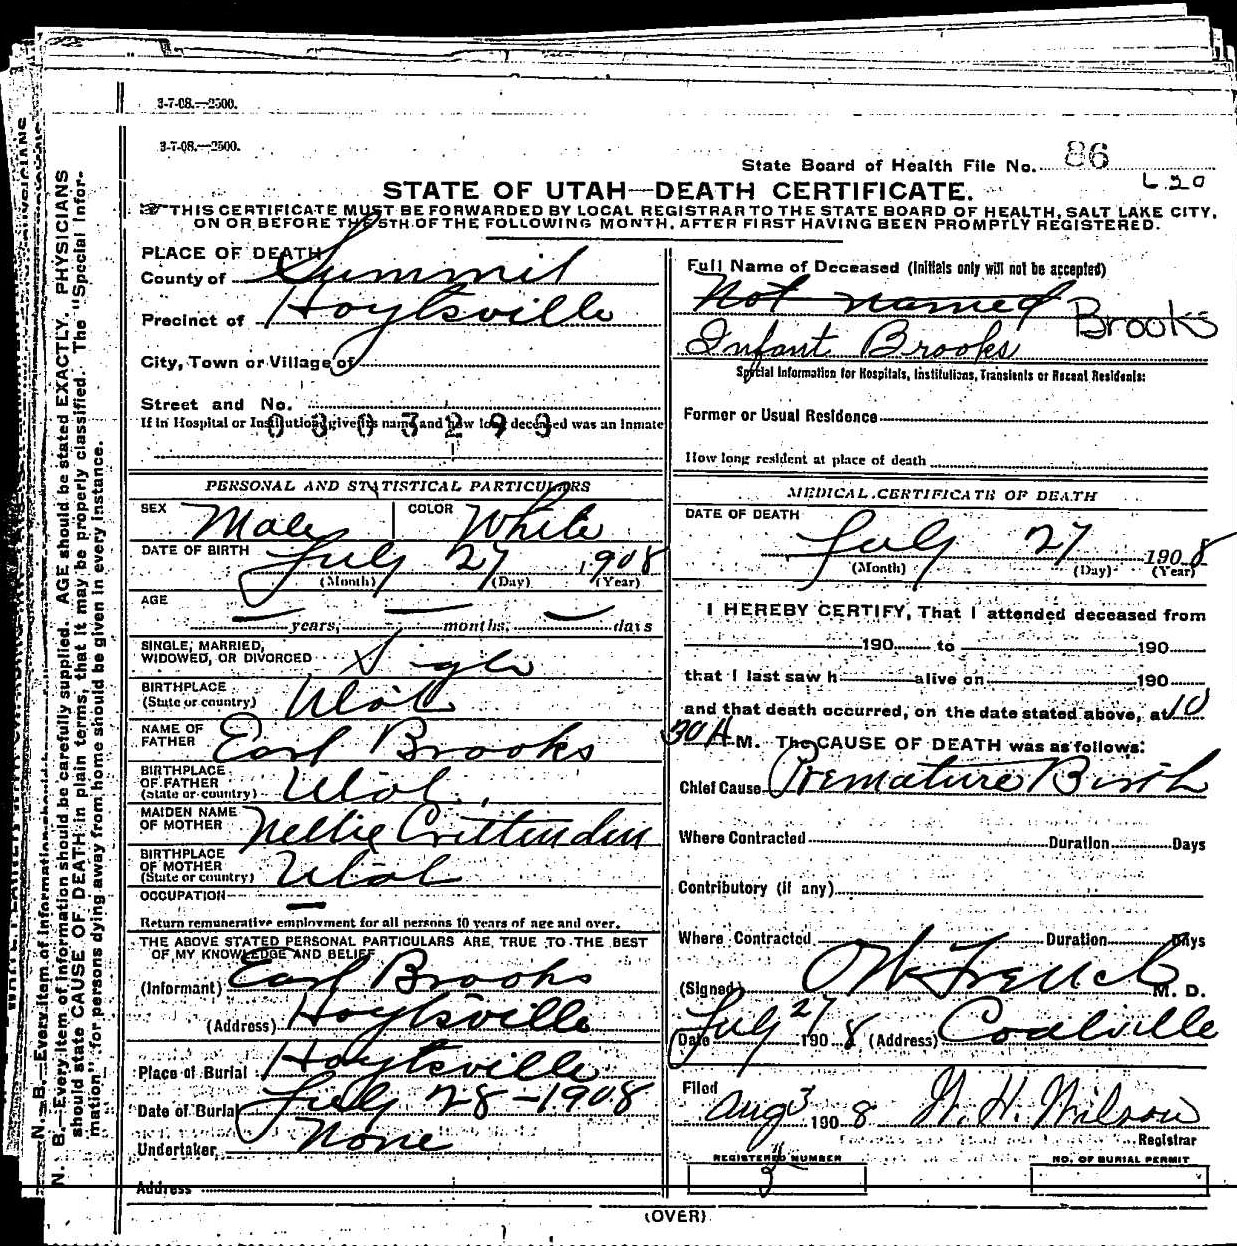 3-7-08.—2500.
3-7-08.—2500.
State Board of Health File No. 86
620
STATE OF UTAH—DEATH CERTIFICATE.
THIS CERTIFICATE MUST BE FORWARDED BY LOCAL REGISTRAR TO THE STATE BOARD OF HEALTH, SALT LAKE CITY,
ON OR BEFORE THE 5TH OF THE FOLLOWING MONTH, AFTER FIRST HAVING BEEN PROMPTLY REGISTERED.
PLACE OF DEATH
County of Summit
Precinct of Hoytsville
City, Town or Village of
Street and No.
If in Hospital or Institution, give its name and how long deceased was an Inmate
0303293
PERSONAL AND STATISTICAL PARTICULARS
SEX Male COLOR White
DATE OF BIRTH July 27 1908
(Month) (Day) (Year)
AGE
— years, — months, — days
SINGLE, MARRIED,
WIDOWED, OR DIVORCED Single
BIRTHPLACE
(State or country) Utah
NAME OF
FATHER Earl Brooks
BIRTHPLACE
OF FATHER
(State or country) Utah
MAIDEN NAME
OF MOTHER Nellie Crittenden
BIRTHPLACE
OF MOTHER
(State or country) Utah
OCCUPATION —
Return remunerative employment for all persons 10 years of age and over.
THE ABOVE STATED PERSONAL PARTICULARS ARE TRUE TO THE BEST
OF MY KNOWLEDGE AND BELIEF
(Informant) Earl Brooks
(Address) Hoytsville
Place of Burial Hoytsville
Date of Burial July 28-1908
Undertaker None
Address
Full Name of Deceased (Initials only will not be accepted)
Not named Brooks
Infant Brooks
Special Information for Hospitals, Institutions, Transients or Recent Residents:
Former or Usual Residence
How long resident at place of death
MEDICAL CERTIFICATE OF DEATH
DATE OF DEATH
July 27 1908
(Month) (Day) (Year)
I HEREBY CERTIFY, That I attended deceased from
190 to 190
that I last saw h alive on 190
and that death occurred, on the date stated above, at 10
30 A M. The CAUSE OF DEATH was as follows:
Chief Cause Premature Birth
Where Contracted Duration Days
Contributory (if any)
Where Contracted Duration Days
(Signed) O W French M. D.
Date July 27 1908 (Address) Coalville
Filed Aug 3 1908 W. H. Wilson
Registrar
REGISTERED NUMBER
3
NO. OF BURIAL PERMIT
(OVER)
N. B.—Every item of information should be carefully supplied. AGE should be stated EXACTLY. PHYSICIANS
should state CAUSE OF DEATH in plain terms, that it may be properly classified. The "Special Infor-
mation" for persons dying away from home should be given in every instance.
N. B.—Every item of information